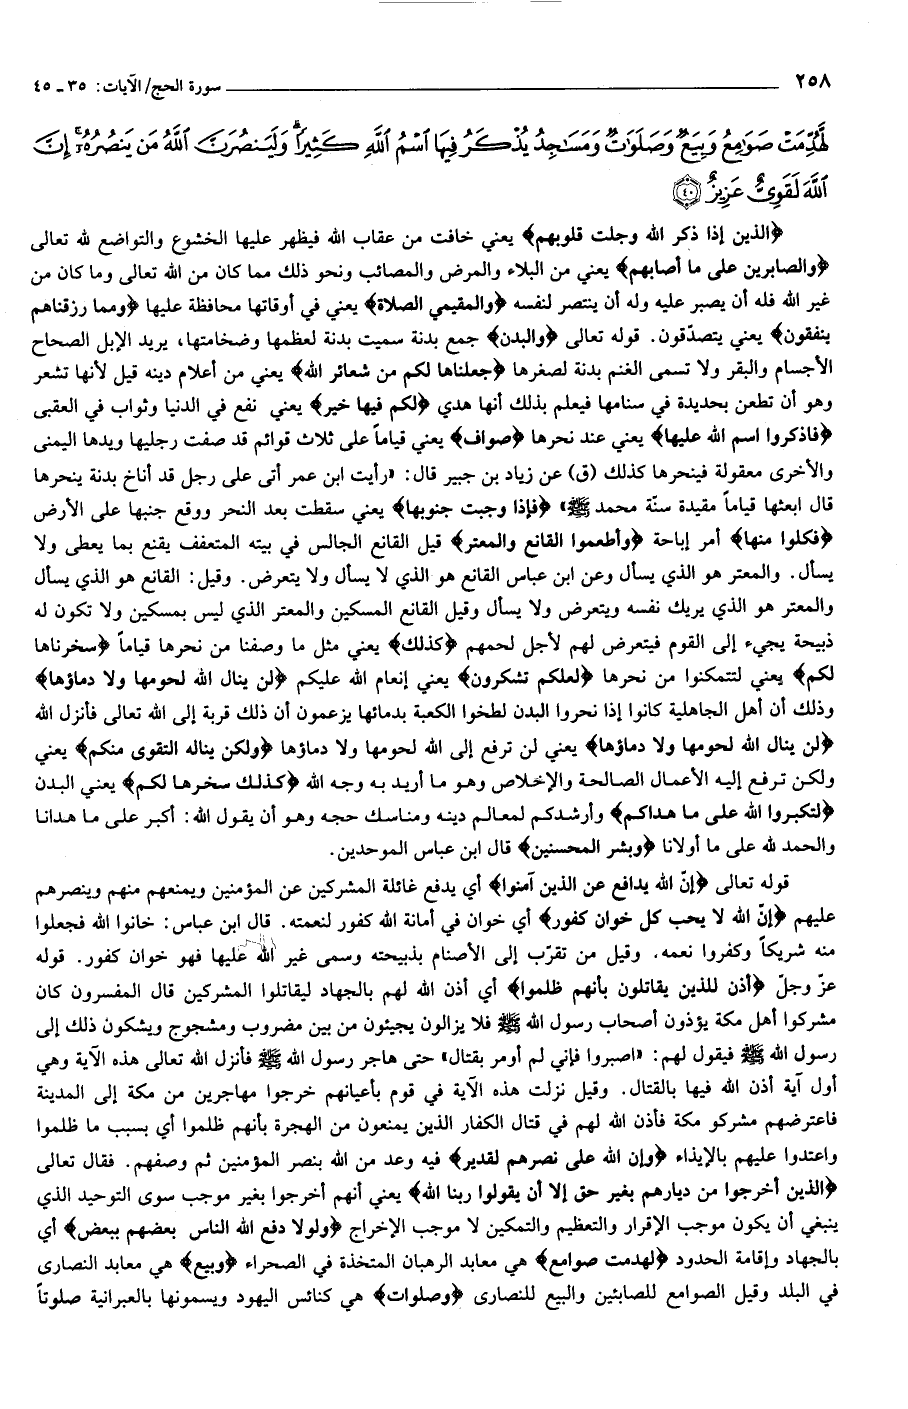 ٢٥٨ سورة الحج/ الآيات: ٣٥ ـ ٤٥
لَّهُدِّمَتْ صَوَامِعُ وَبِيَعٌ وَصَلَوَاتٌ وَمَسَاجِدُ يُذْكَرُ فِيهَا ٱسْمُ ٱللَّهِ كَثِيرًا ۗ وَلَيَنصُرَنَّ ٱللَّهُ مَن يَنصُرُهُۥٓ ۚ إِنَّ
ٱللَّهَ لَقَوِىٌّ عَزِيزٌ ﴿٤٠﴾
﴿الذين إذا ذكر الله وجلت قلوبهم﴾ يعني خافت من عقاب الله فيظهر عليها الخشوع والتواضع لله تعالى
﴿والصابرين على ما أصابهم﴾ يعني من البلاء والمرض والمصائب ونحو ذلك مما كان من الله تعالى وما كان من
غير الله فله أن يصبر عليه وله أن ينتصر لنفسه ﴿والمقيمي الصلاة﴾ يعني في أوقاتها محافظة عليها ﴿ومما رزقناهم
ينفقون﴾ يعني يتصدّقون. قوله تعالى ﴿والبدن﴾ جمع بدنة سميت بدنة لعظمها وضخامتها، يريد الإبل الصحاح
الأجسام والبقر ولا تسمى الغنم بدنة لصغرها ﴿جعلناها لكم من شعائر الله﴾ يعني من أعلام دينه قيل لأنها تشعر
وهو أن تطعن بحديدة في سنامها فيعلم بذلك أنها هدي ﴿لكم فيها خير﴾ يعني نفع في الدنيا وثواب في العقبى
﴿فاذكروا اسم الله عليها﴾ يعني عند نحرها ﴿صواف﴾ يعني قياماً على ثلاث قوائم قد صفت رجليها ويدها اليمنى
والأخرى معقولة فينحرها كذلك (ق) عن زياد بن جبير قال: «رأيت ابن عمر أتى على رجل قد أناخ بدنة ينحرها
قال ابعثها قياماً مقيدة سنّة محمد ﷺ» ﴿فإذا وجبت جنوبها﴾ يعني سقطت بعد النحر ووقع جنبها على الأرض
﴿فكلوا منها﴾ أمر إباحة ﴿وأطعموا القانع والمعتر﴾ قيل القانع الجالس في بيته المتعفف يقنع بما يعطى ولا
يسأل. والمعتر هو الذي يسأل وعن ابن عباس القانع هو الذي لا يسأل ولا يتعرض. وقيل: القانع هو الذي يسأل
والمعتر هو الذي يريك نفسه ويتعرض ولا يسأل وقيل القانع المسكين والمعتر الذي ليس بمسكين ولا تكون له
ذبيحة يجيء إلى القوم فيتعرض لهم لأجل لحمهم ﴿كذلك﴾ يعني مثل ما وصفنا من نحرها قياماً ﴿سخرناها
لكم﴾ يعني لتتمكنوا من نحرها ﴿لعلكم تشكرون﴾ يعني إنعام الله عليكم ﴿لن ينال الله لحومها ولا دماؤها﴾
وذلك أن أهل الجاهلية كانوا إذا نحروا البدن لطخوا الكعبة بدمائها يزعمون أن ذلك قربة إلى الله تعالى فأنزل الله
﴿لن ينال الله لحومها ولا دماؤها﴾ يعني لن ترفع إلى الله لحومها ولا دماؤها ﴿ولكن يناله التقوى منكم﴾ يعني
ولكن ترفع إليه الأعمال الصالحة والإخلاص وهو ما أريد به وجه الله ﴿كذلك سخرها لكم﴾ يعني البدن
﴿لتكبروا الله على ما هداكم﴾ وأرشدكم لمعالم دينه ومناسك حجه وهو أن يقول الله: أكبر على ما هدانا
والحمد لله على ما أولانا ﴿وبشر المحسنين﴾ قال ابن عباس الموحدين.
قوله تعالى ﴿إنّ الله يدافع عن الذين آمنوا﴾ أي يدفع غائلة المشركين عن المؤمنين ويمنعهم منهم وينصرهم
عليهم ﴿إنّ الله لا يحب كل خوان كفور﴾ أي خوان في أمانة الله كفور لنعمته. قال ابن عباس: خانوا الله فجعلوا
منه شريكاً وكفروا نعمه، وقيل من تقرّب إلى الأصنام بذبيحته وسمى غير الله عليها فهو خوان كفور. قوله
عزّ وجلّ ﴿أذن للذين يقاتلون بأنهم ظلموا﴾ أي أذن الله لهم بالجهاد ليقاتلوا المشركين قال المفسرون كان
مشركوا أهل مكة يؤذون أصحاب رسول الله ﷺ فلا يزالون يجيئون من بين مضروب ومشجوج ويشكون ذلك إلى
رسول الله ﷺ فيقول لهم: «اصبروا فإني لم أومر بقتال» حتى هاجر رسول الله ﷺ فأنزل الله تعالى هذه الآية وهي
أول آية أذن الله فيها بالقتال. وقيل نزلت هذه الآية في قوم بأعيانهم خرجوا مهاجرين من مكة إلى المدينة
فاعترضهم مشركو مكة فأذن الله لهم في قتال الكفار الذين يمنعون من الهجرة بأنهم ظلموا أي بسبب ما ظلموا
واعتدوا عليهم بالإيذاء ﴿وإن الله على نصرهم لقدير﴾ فيه وعد من الله بنصر المؤمنين ثم وصفهم. فقال تعالى
﴿الذين أخرجوا من ديارهم بغير حق إلا أن يقولوا ربنا الله﴾ يعني أنهم أخرجوا بغير موجب سوى التوحيد الذي
ينبغي أن يكون موجب الإقرار والتعظيم والتمكين لا موجب الإخراج ﴿ولولا دفع الله الناس بعضهم ببعض﴾ أي
بالجهاد وإقامة الحدود ﴿لهدمت صوامع﴾ هي معابد الرهبان المتخذة في الصحراء ﴿وبيع﴾ هي معابد النصارى
في البلد وقيل الصوامع للصابئين والبيع للنصارى ﴿وصلوات﴾ هي كنائس اليهود ويسمونها بالعبرانية صلوتاً